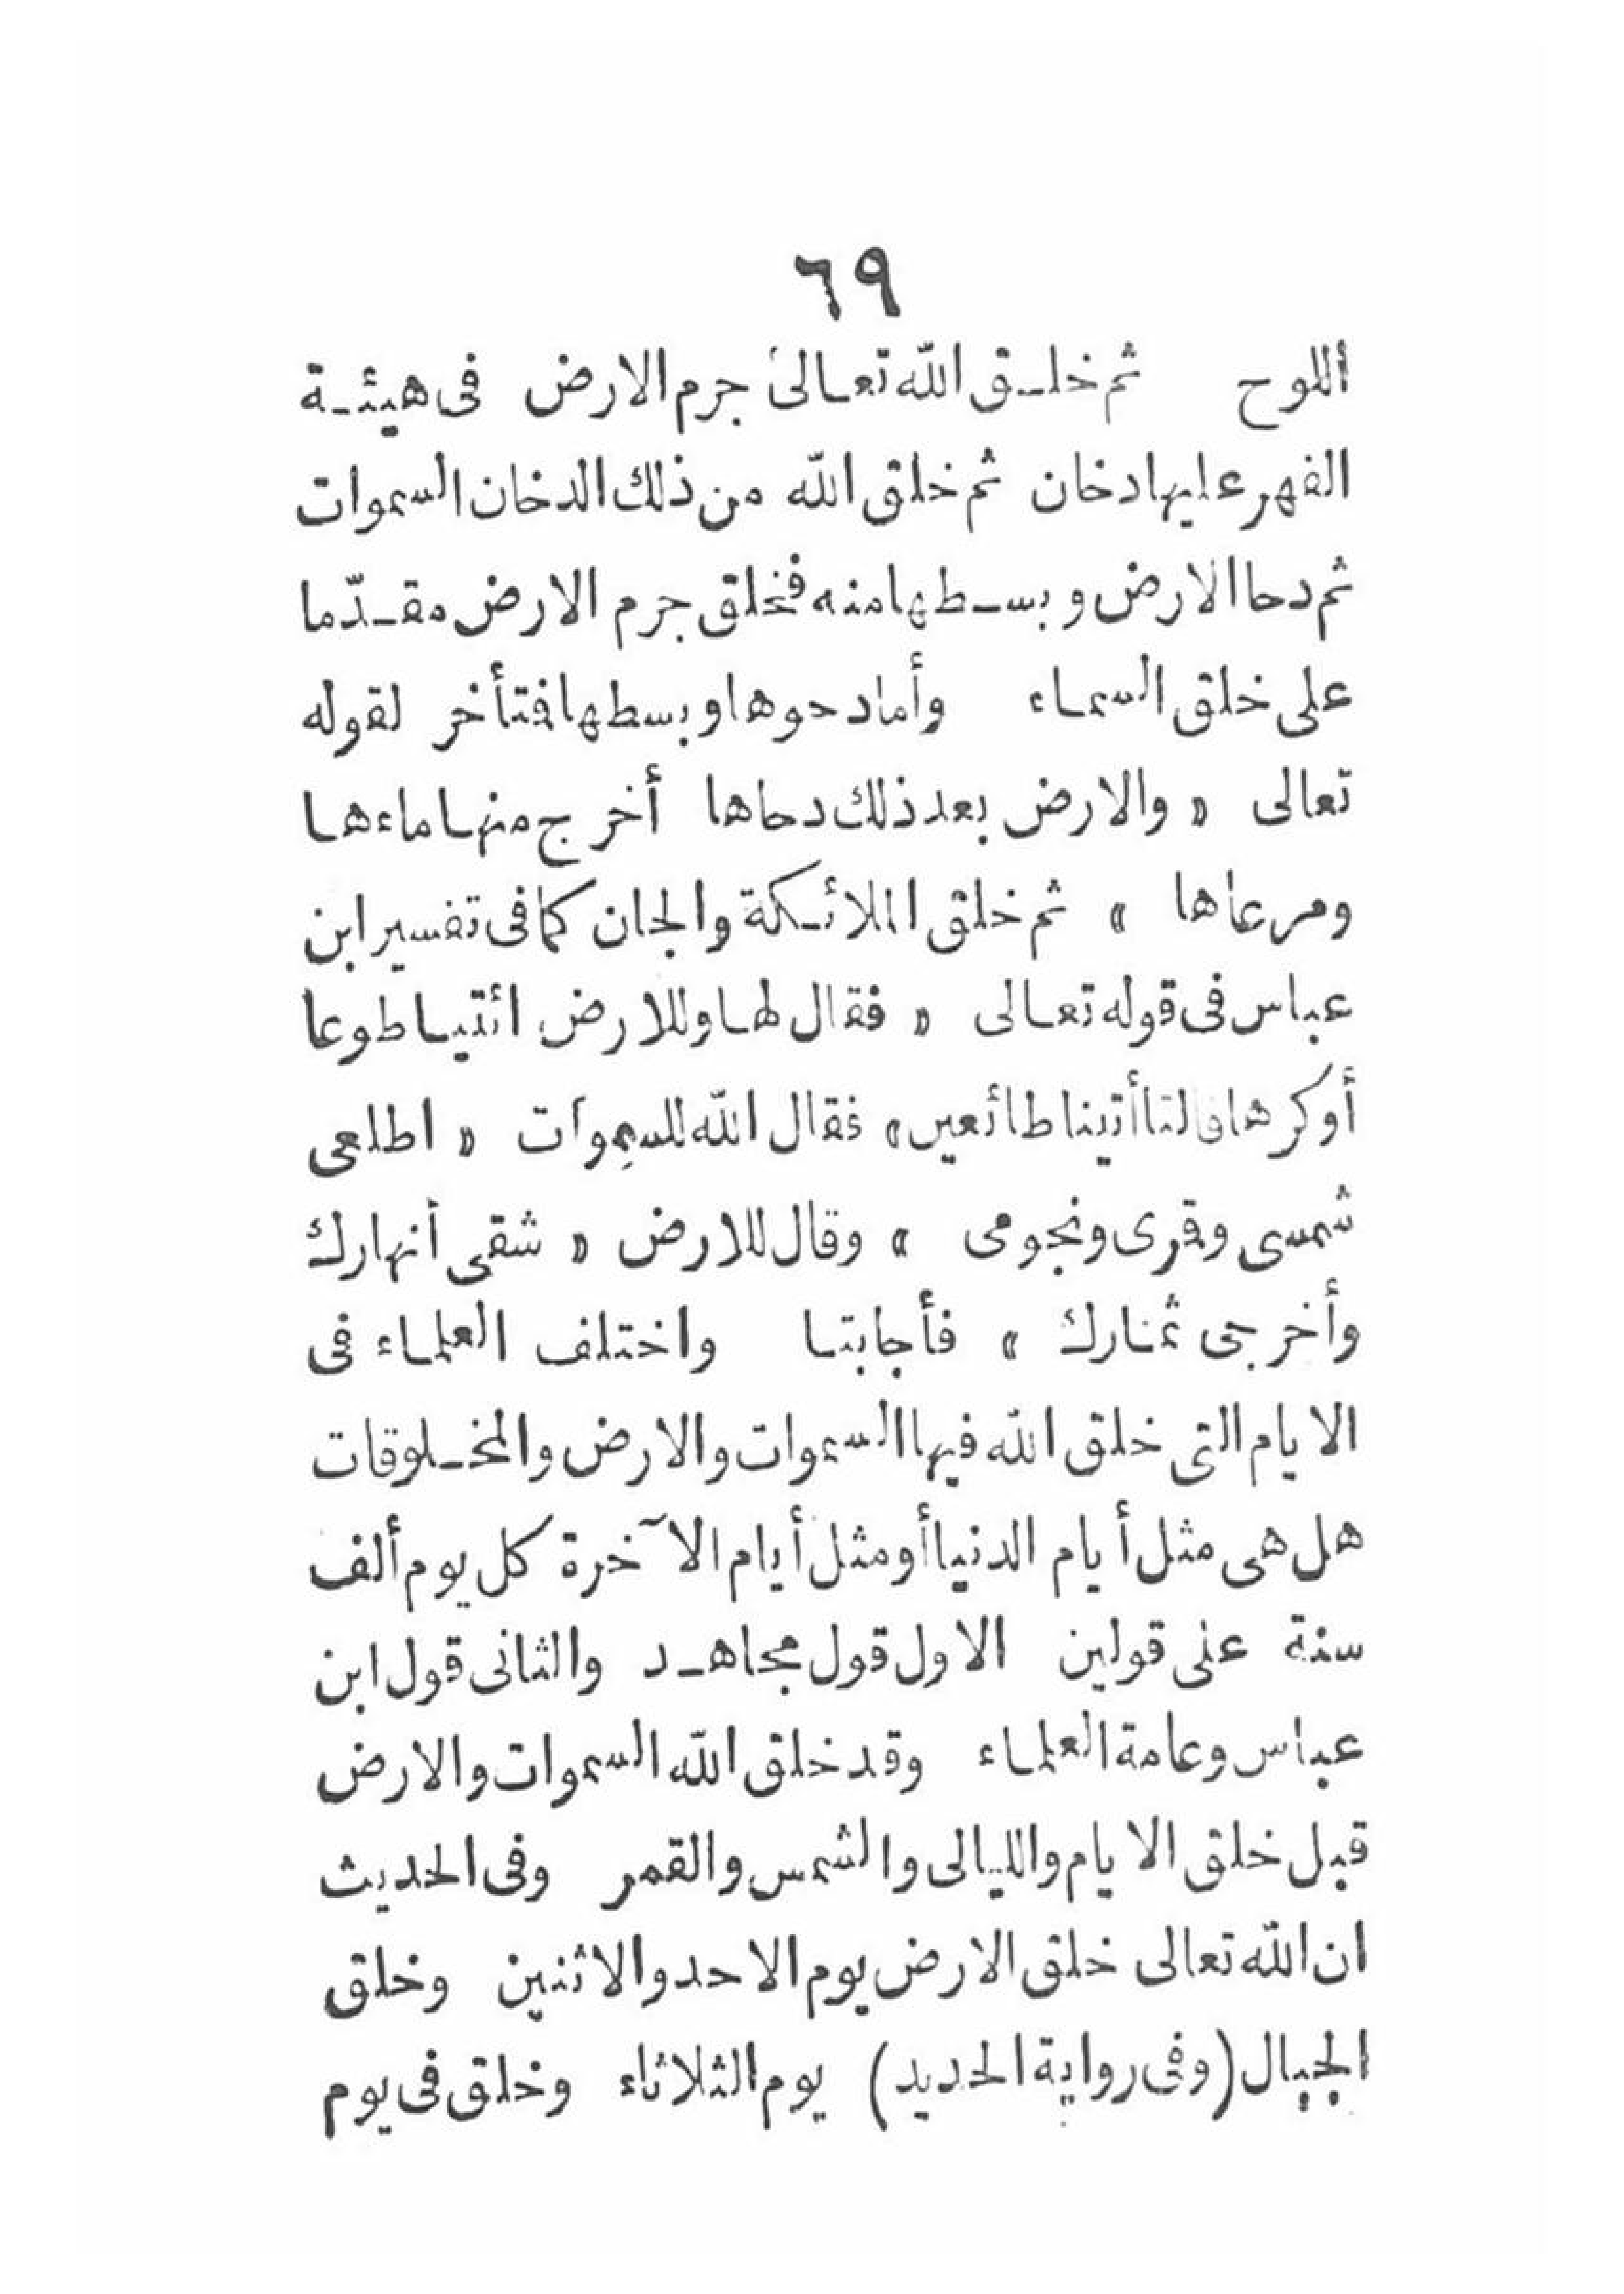 ٦٩
اللوح ثم خلق الله تعالى جرم الارض فى هيئة
الفهر عليها دخان ثم خلق الله من ذلك الدخان السموات
ثم دحا الارض وبسطها منه فخلق جرم الارض مقدّما
على خلق السماء وأما دحوها وبسطها فتأخر لقوله
تعالى « والارض بعد ذلك دحاها أخرج منها ماءها
ومرعاها » ثم خلق الملائكة والجان كما فى تفسير ابن
عباس فى قوله تعالى « فقال لها وللارض ائتيا طوعا
أو كرها قالتا أتينا طائعين » فقال الله للسموات « اطلعى
شمسى وقمرى ونجومى » وقال للارض « شققى أنهارك
وأخرجى ثمارك » فأجابتا واختلف العلماء فى
الايام التى خلق الله فيها السموات والارض والمخلوقات
هل هى مثل أيام الدنيا أو مثل أيام الآخرة كل يوم ألف
سنة على قولين الاول قول مجاهد والثانى قول ابن
عباس وعامة العلماء وقد خلق الله السموات والارض
قبل خلق الايام والليالى والشمس والقمر وفى الحديث
ان الله تعالى خلق الارض يوم الاحد والاثنين وخلق
الجبال (وفى رواية الحديد) يوم الثلاثاء وخلق فى يوم